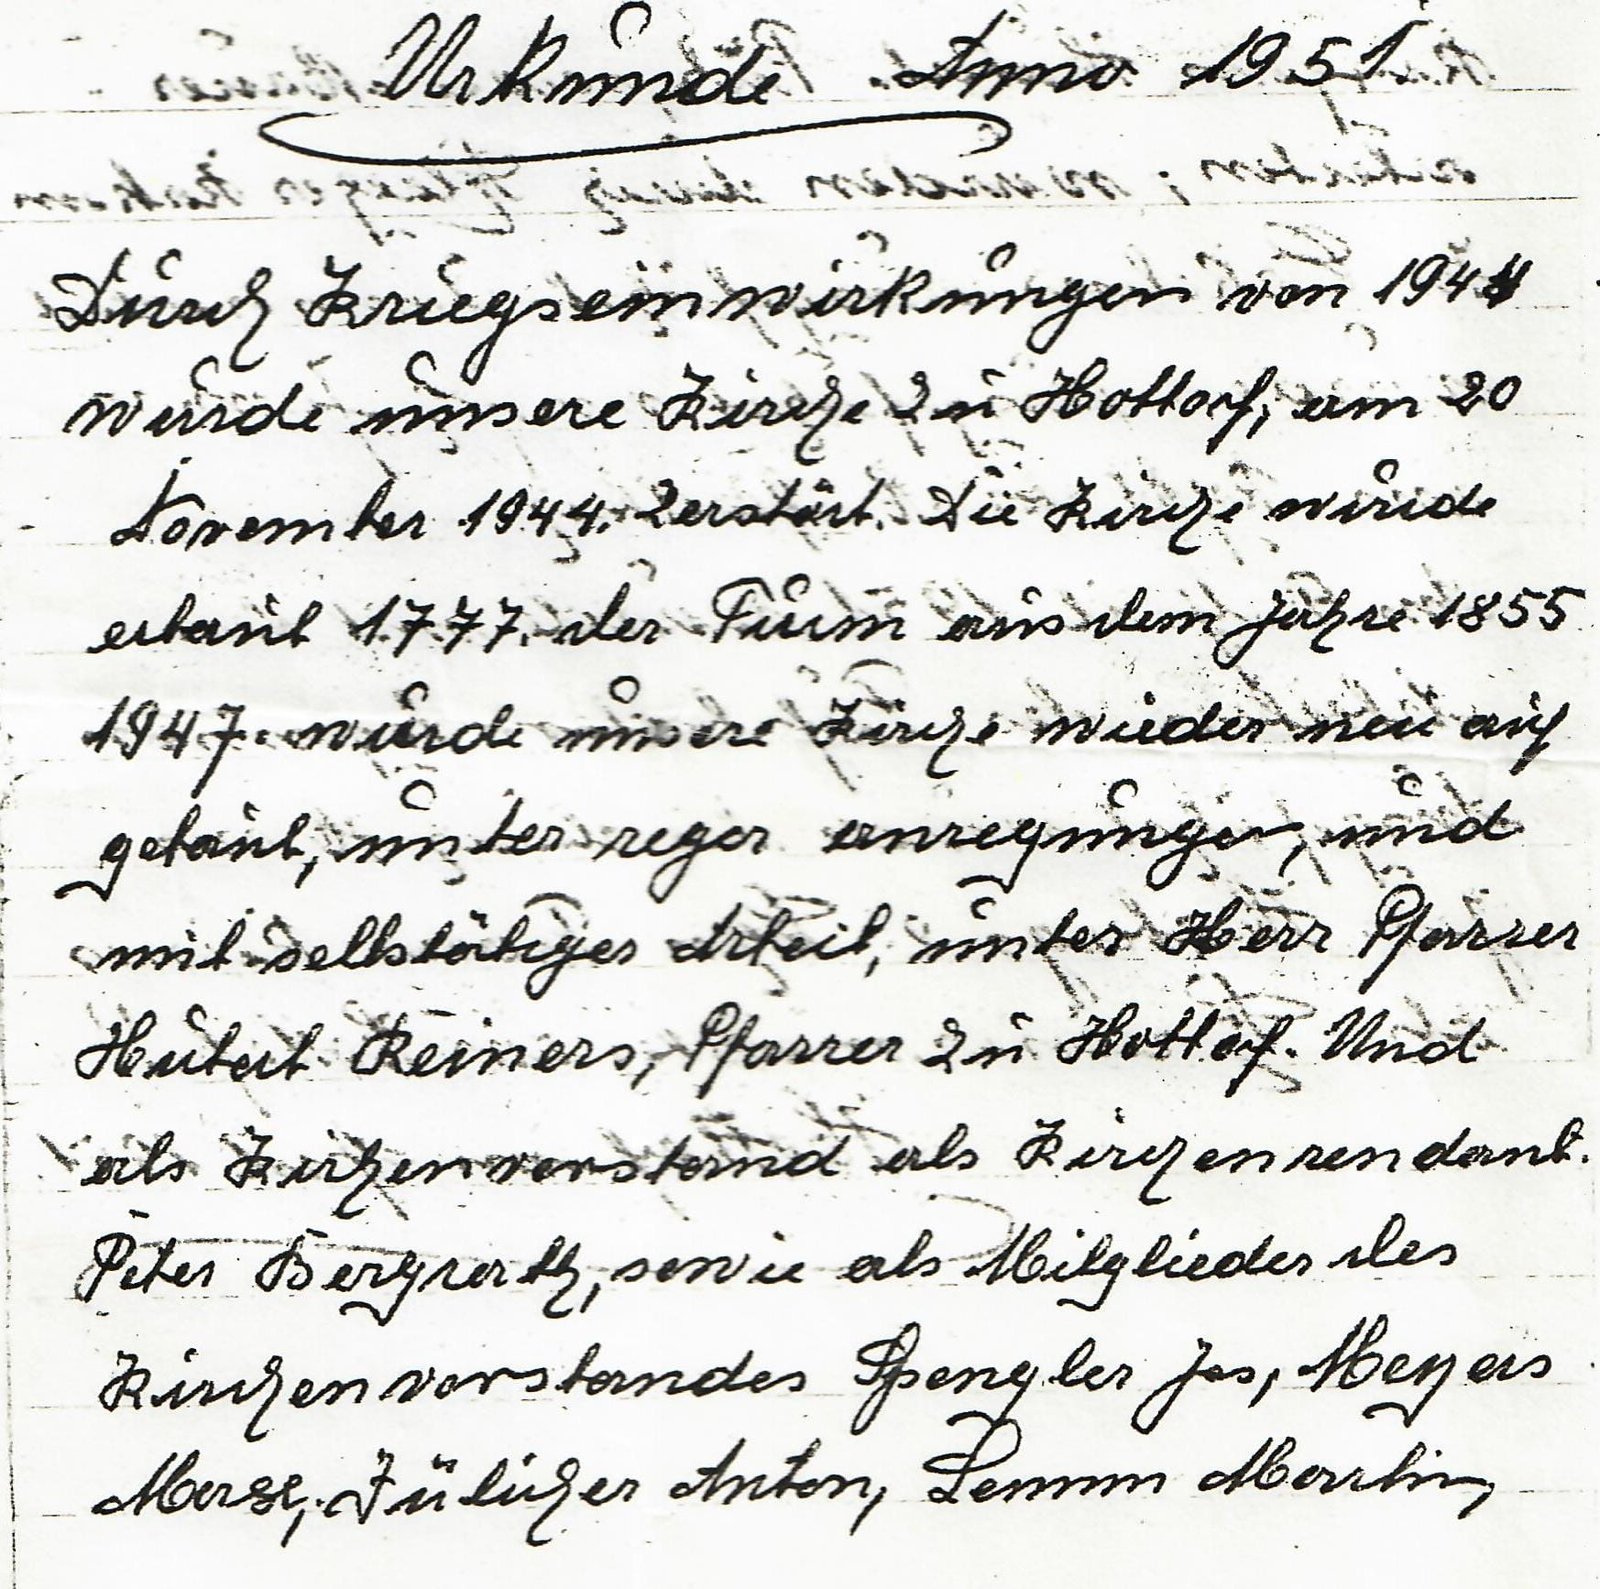 Urkunde Anno 1951
Durch Kriegseinwirkungen von 1944
wurde unsere Kirche zu Hottorf, am 20
November 1944. zerstört. Die Kirche wurde
erbaut 1777. der Turm aus dem Jahre 1855
1947. wurde unsere Kirche wieder neu auf
gebaut, unter reger anregunger, und
mit selbstätiger Arbeit, unter Herr Pfarrer
Hubert Reiners, Pfarrer zu Hottorf. Und
als Kirchenvorstand als Kirchenrendant.
Peter Bergrath, sowie als Mitglieder des
Kirchenvorstandes Spengler Jos, Meyers
Jülicher Anton, Lemm Martin,